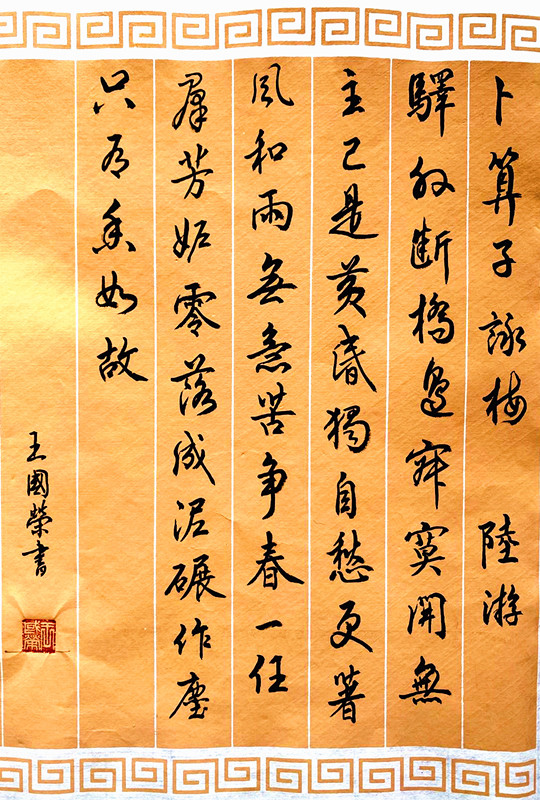 卜算子詠梅 陸游
驛外斷橋邊寂寞開無
主已是黄昏獨自愁更著
風和雨無意苦争春一任
羣芳妬零落成泥碾作塵
只有香如故
王國榮書